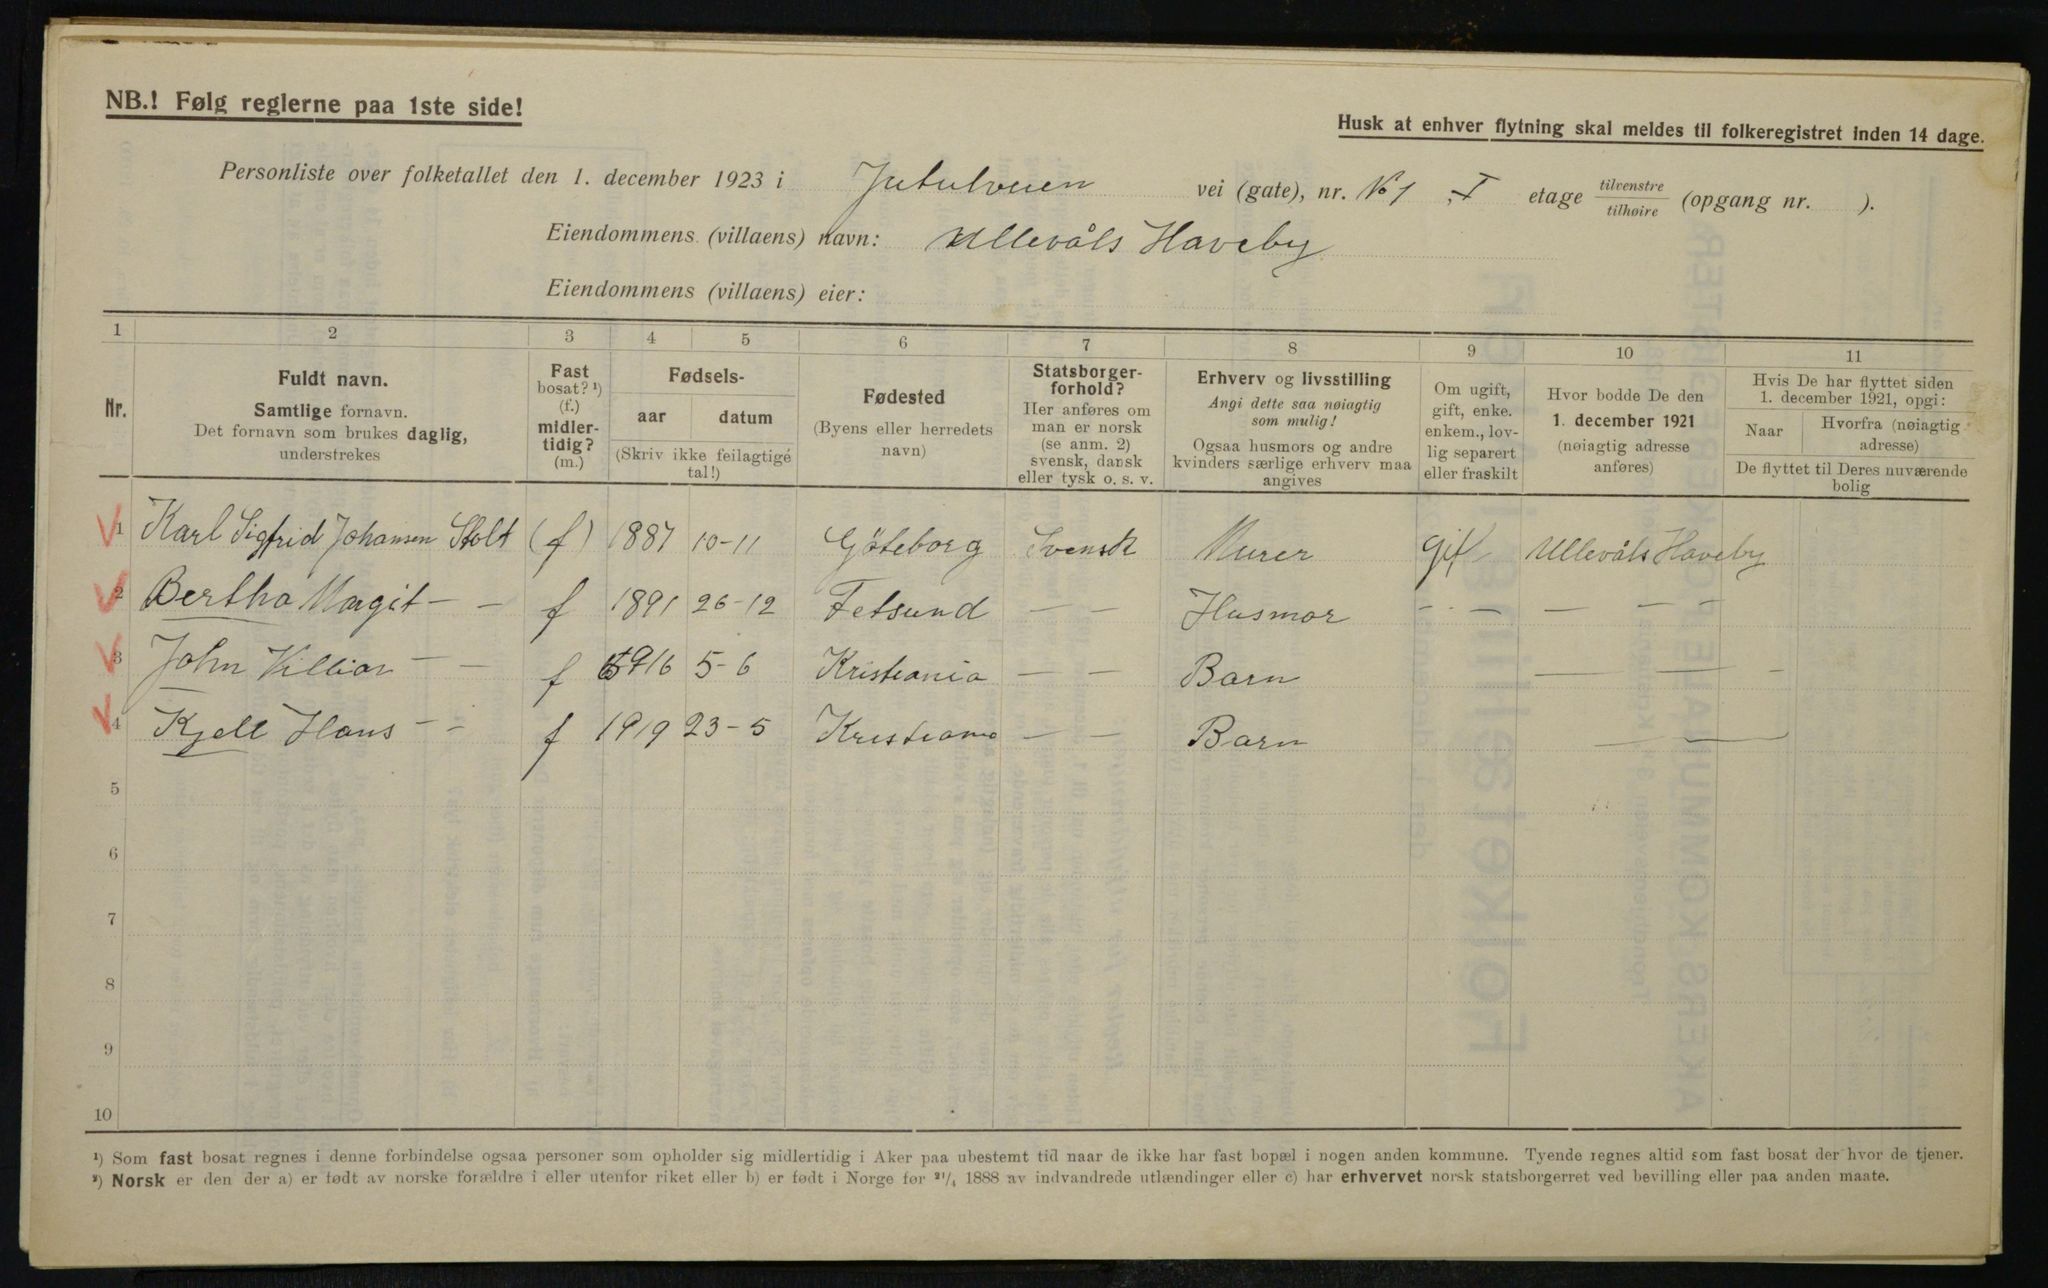 NB.! Følg reglerne paa 1ste side!
Husk at enhver flytning skal meldes til folkeregistret inden 14 dage.
Personliste over folketallet den 1. december 1923 i Jutulveien vei (gate), nr. No 1, I etage tilvenstre tilhøire (opgang nr. ).
Eiendommens (villaens) navn: Ullevåls Haveby
Eiendommens (villaens) eier:
1 2 3 4 5 6 7 8 9 10 11
Nr.
Fuldt navn.
Samtlige fornavn.
Det fornavn som brukes daglig,
understrekes
Fast
bosat? ¹)
(f.)
midler-
tidig?
(m.)
Fødsels-
aar datum
(Skriv ikke feilagtige
tal!)
Fødested
(Byens eller herredets
navn)
Statsborger-
forhold?
Her anføres om
man er norsk
(se anm. 2)
svensk, dansk
eller tysk o. s. v.
Erhverv og livsstilling
Angi dette saa nøiagtig
som mulig!
Ogsaa husmors og andre
kvinders særlige erhverv maa
angives
Om ugift,
gift, enke.
enkem., lov-
lig separert
eller fraskilt
Hvor bodde De den
1. december 1921
(nøiagtig adresse
anføres)
Hvis De har flyttet siden
1. december 1921, opgi:
Naar
Hvorfra (nøiagtig
adresse)
De flyttet til Deres nuværende
bolig
1 Karl Sigfrid Johansen Stolt (f) 1887 10-11 Göteborg Svensk Murer gift Ullevåls Haveby
2 Bertha Margit — — f 1891 26-12 Fetsund — — Husmor — — — — —
3 John Villiar — — f 1916 5-6 Kristiania — — Barn — — —
4 Kjell Hans — — f 1919 23-5 Kristiania — — Barn — —
5
6
7
8
9
10
¹) Som fast bosat regnes i denne forbindelse ogsaa personer som opholder sig midlertidig i Aker paa ubestemt tid naar de ikke har fast bopæl i nogen anden kommune. Tyende regnes altid som fast bosat der hvor de tjener.
²) Norsk er den der a) er født av norske forældre i eller utenfor riket eller b) er født i Norge før 21/4 1888 av indvandrede utlændinger eller c) har erhvervet norsk statsborgerret ved bevilling eller paa anden maate.